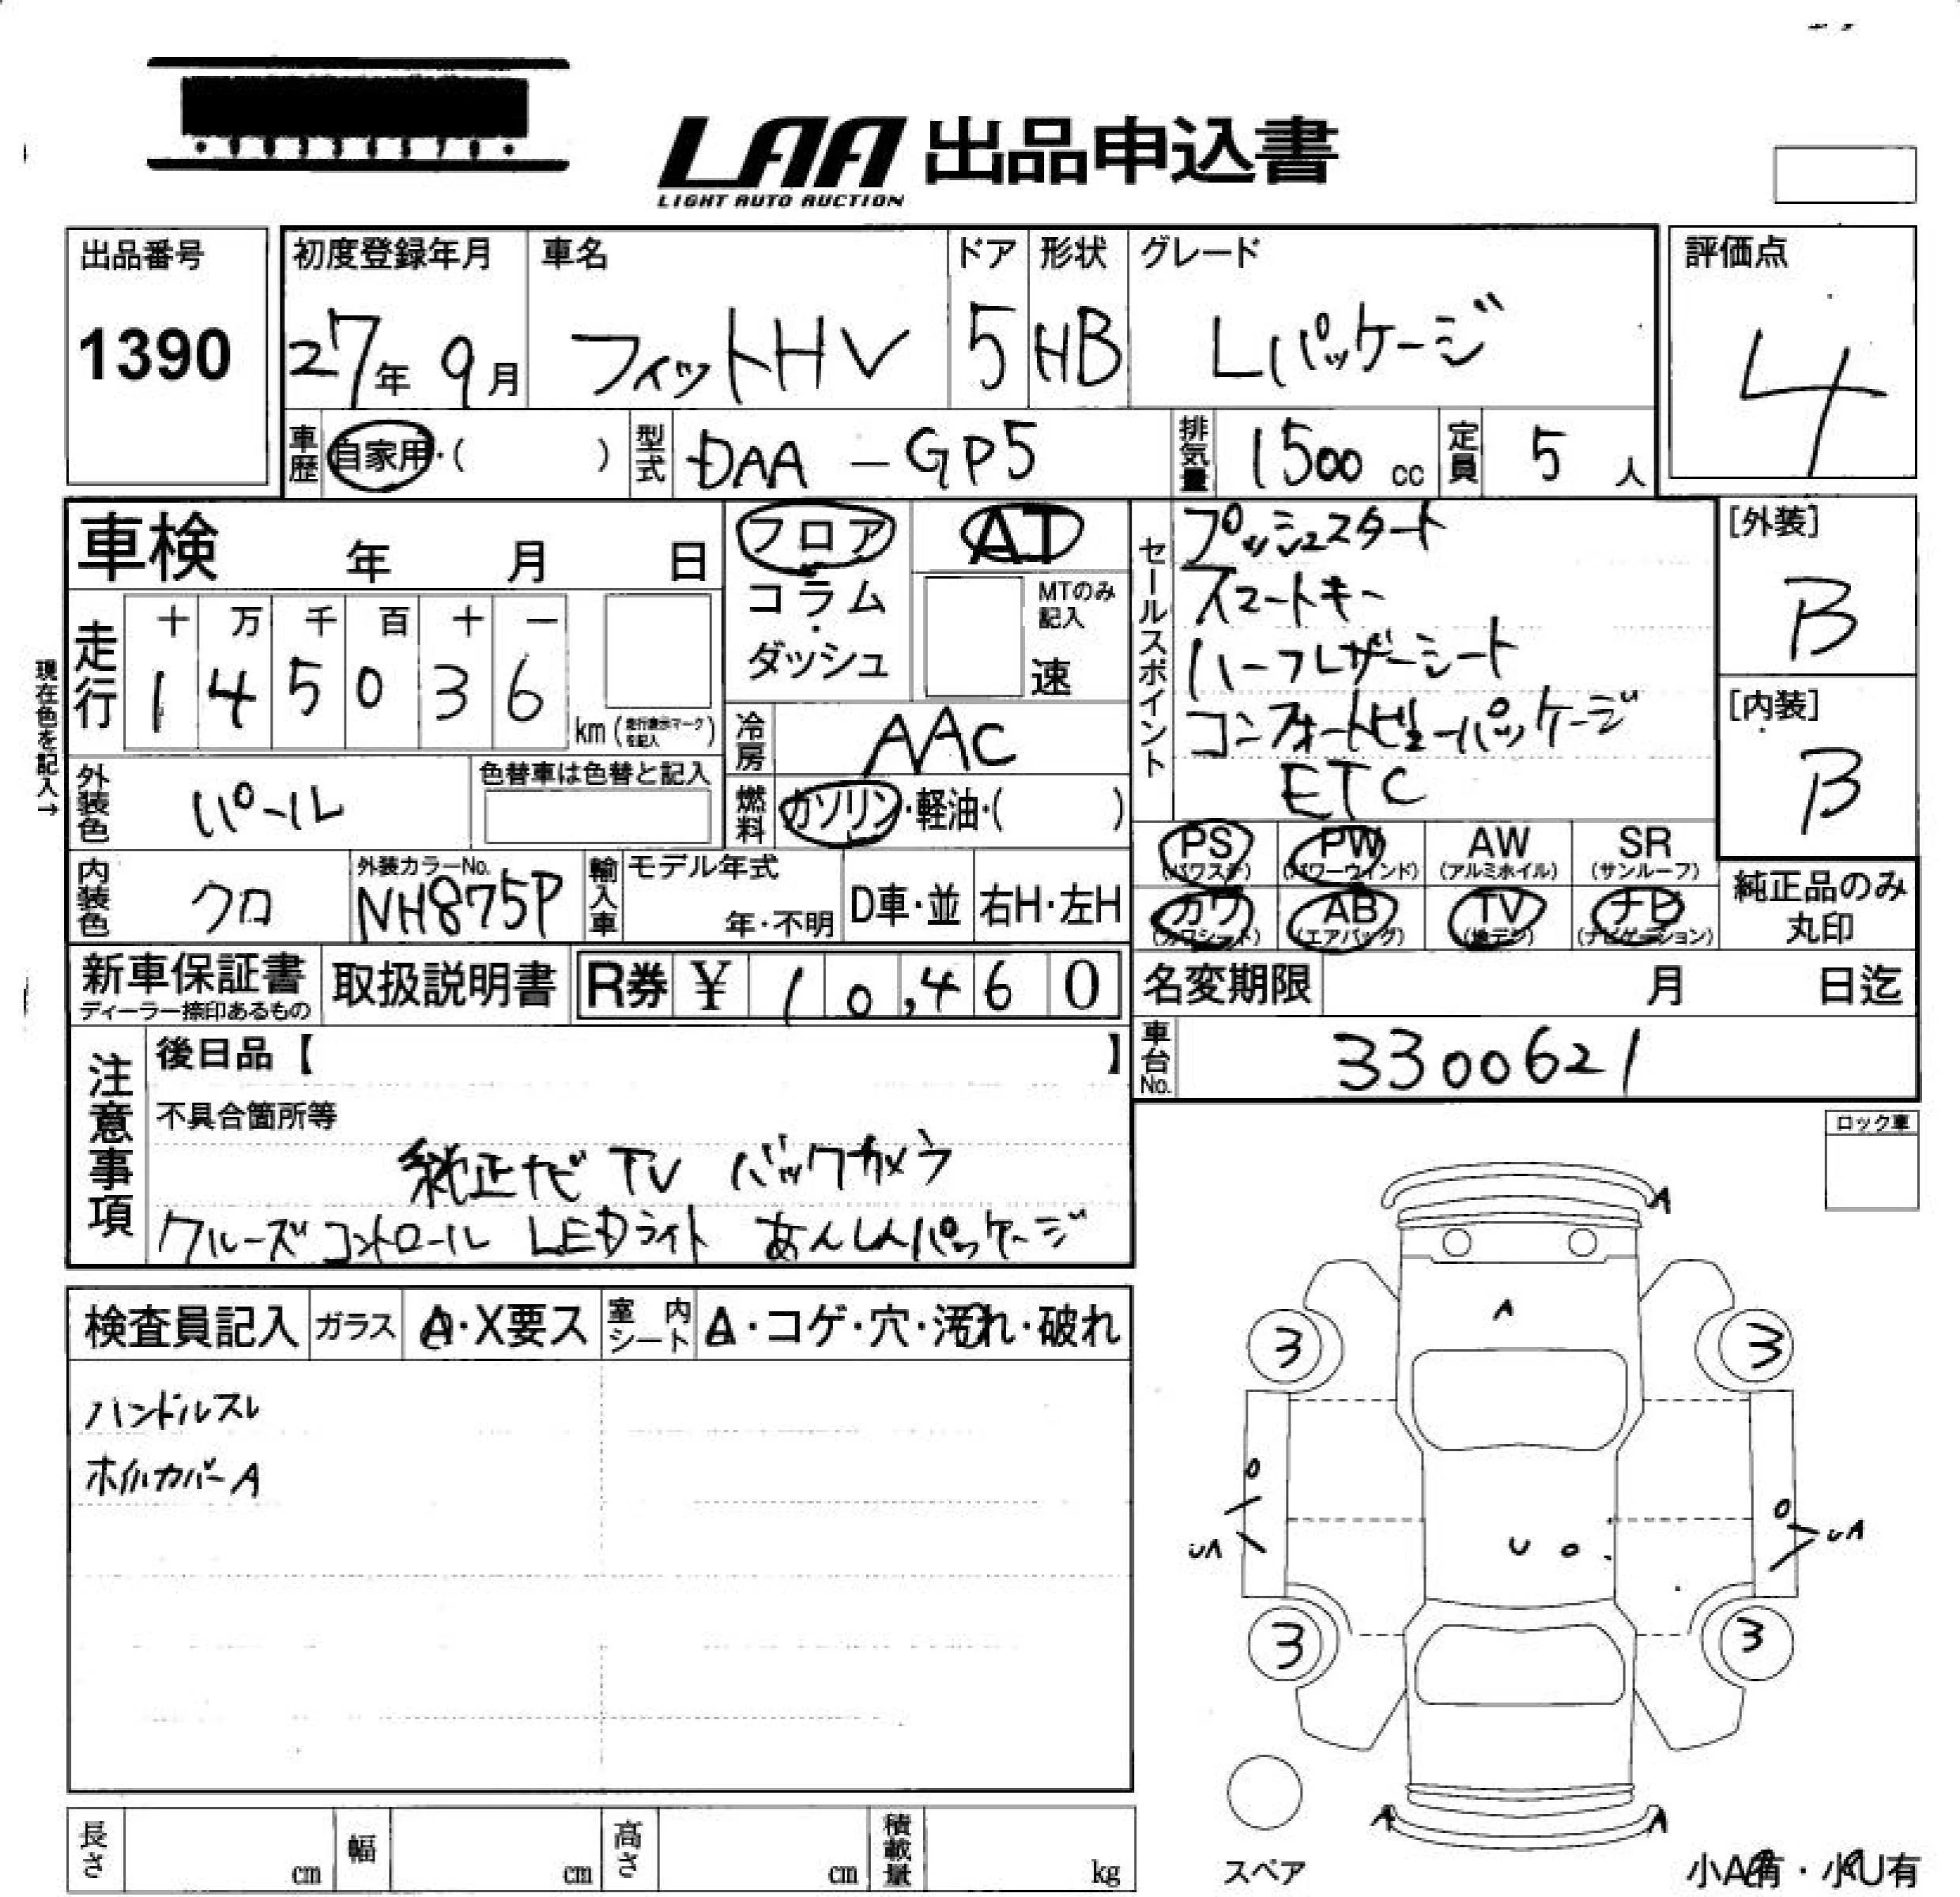 LAA 出品申込書
LIGHT AUTO AUCTION
出品番号
1390
初度登録年月
27年 9月
車名
フィットHV
ドア
5
形状
HB
グレード
Lパッケージ
評価点
4
車歴
自家用・( )
型式
DAA - GP5
排気量
1500 cc
定員
5 人
車検 年 月 日
フロア
コラム
・
ダッシュ
AT
MTのみ
記入
速
現在色を記入→
走行
十 万 千 百 十 一
1 4 5 0 3 6
km (走行表示マークを記入)
冷房
AAC
外装色
パール
色替車は色替と記入
燃料
ガソリン・軽油・( )
内装色
クロ
外装カラーNo.
NH875P
輸入車
モデル年式
年・不明
D車・並
右H・左H
セールスポイント
プッシュスタート
スマートキー
ハーフレザーシート
コンフォートビューパッケージ
ETC
[外装]
B
[内装]
B
PS
(パワステ)
PW
(パワーウインド)
AW
(アルミホイル)
SR
(サンルーフ)
カワ
(カワシート)
AB
(エアバッグ)
TV
(地デジ)
ナビ
(ナビゲーション)
純正品のみ
丸印
新車保証書
ディーラー捺印あるもの
取扱説明書
R券 ¥ 10,460
名変期限 月 日迄
車台No.
3300621
注意事項
後日品【 】
不具合箇所等
純正ナビ TV バックカメラ
クルーズコントロール LEDライト あんしんパッケージ
ロック車
検査員記入
ガラス
A・X要ス
室内シート
A・コゲ・穴・汚れ・破れ
ハンドルスレ
ホイルカバーA
A
A
3
3
UA
U
UA
3
3
A
A
スペア
小A有・小U有
長さ cm
幅 cm
高さ cm
積載量 kg